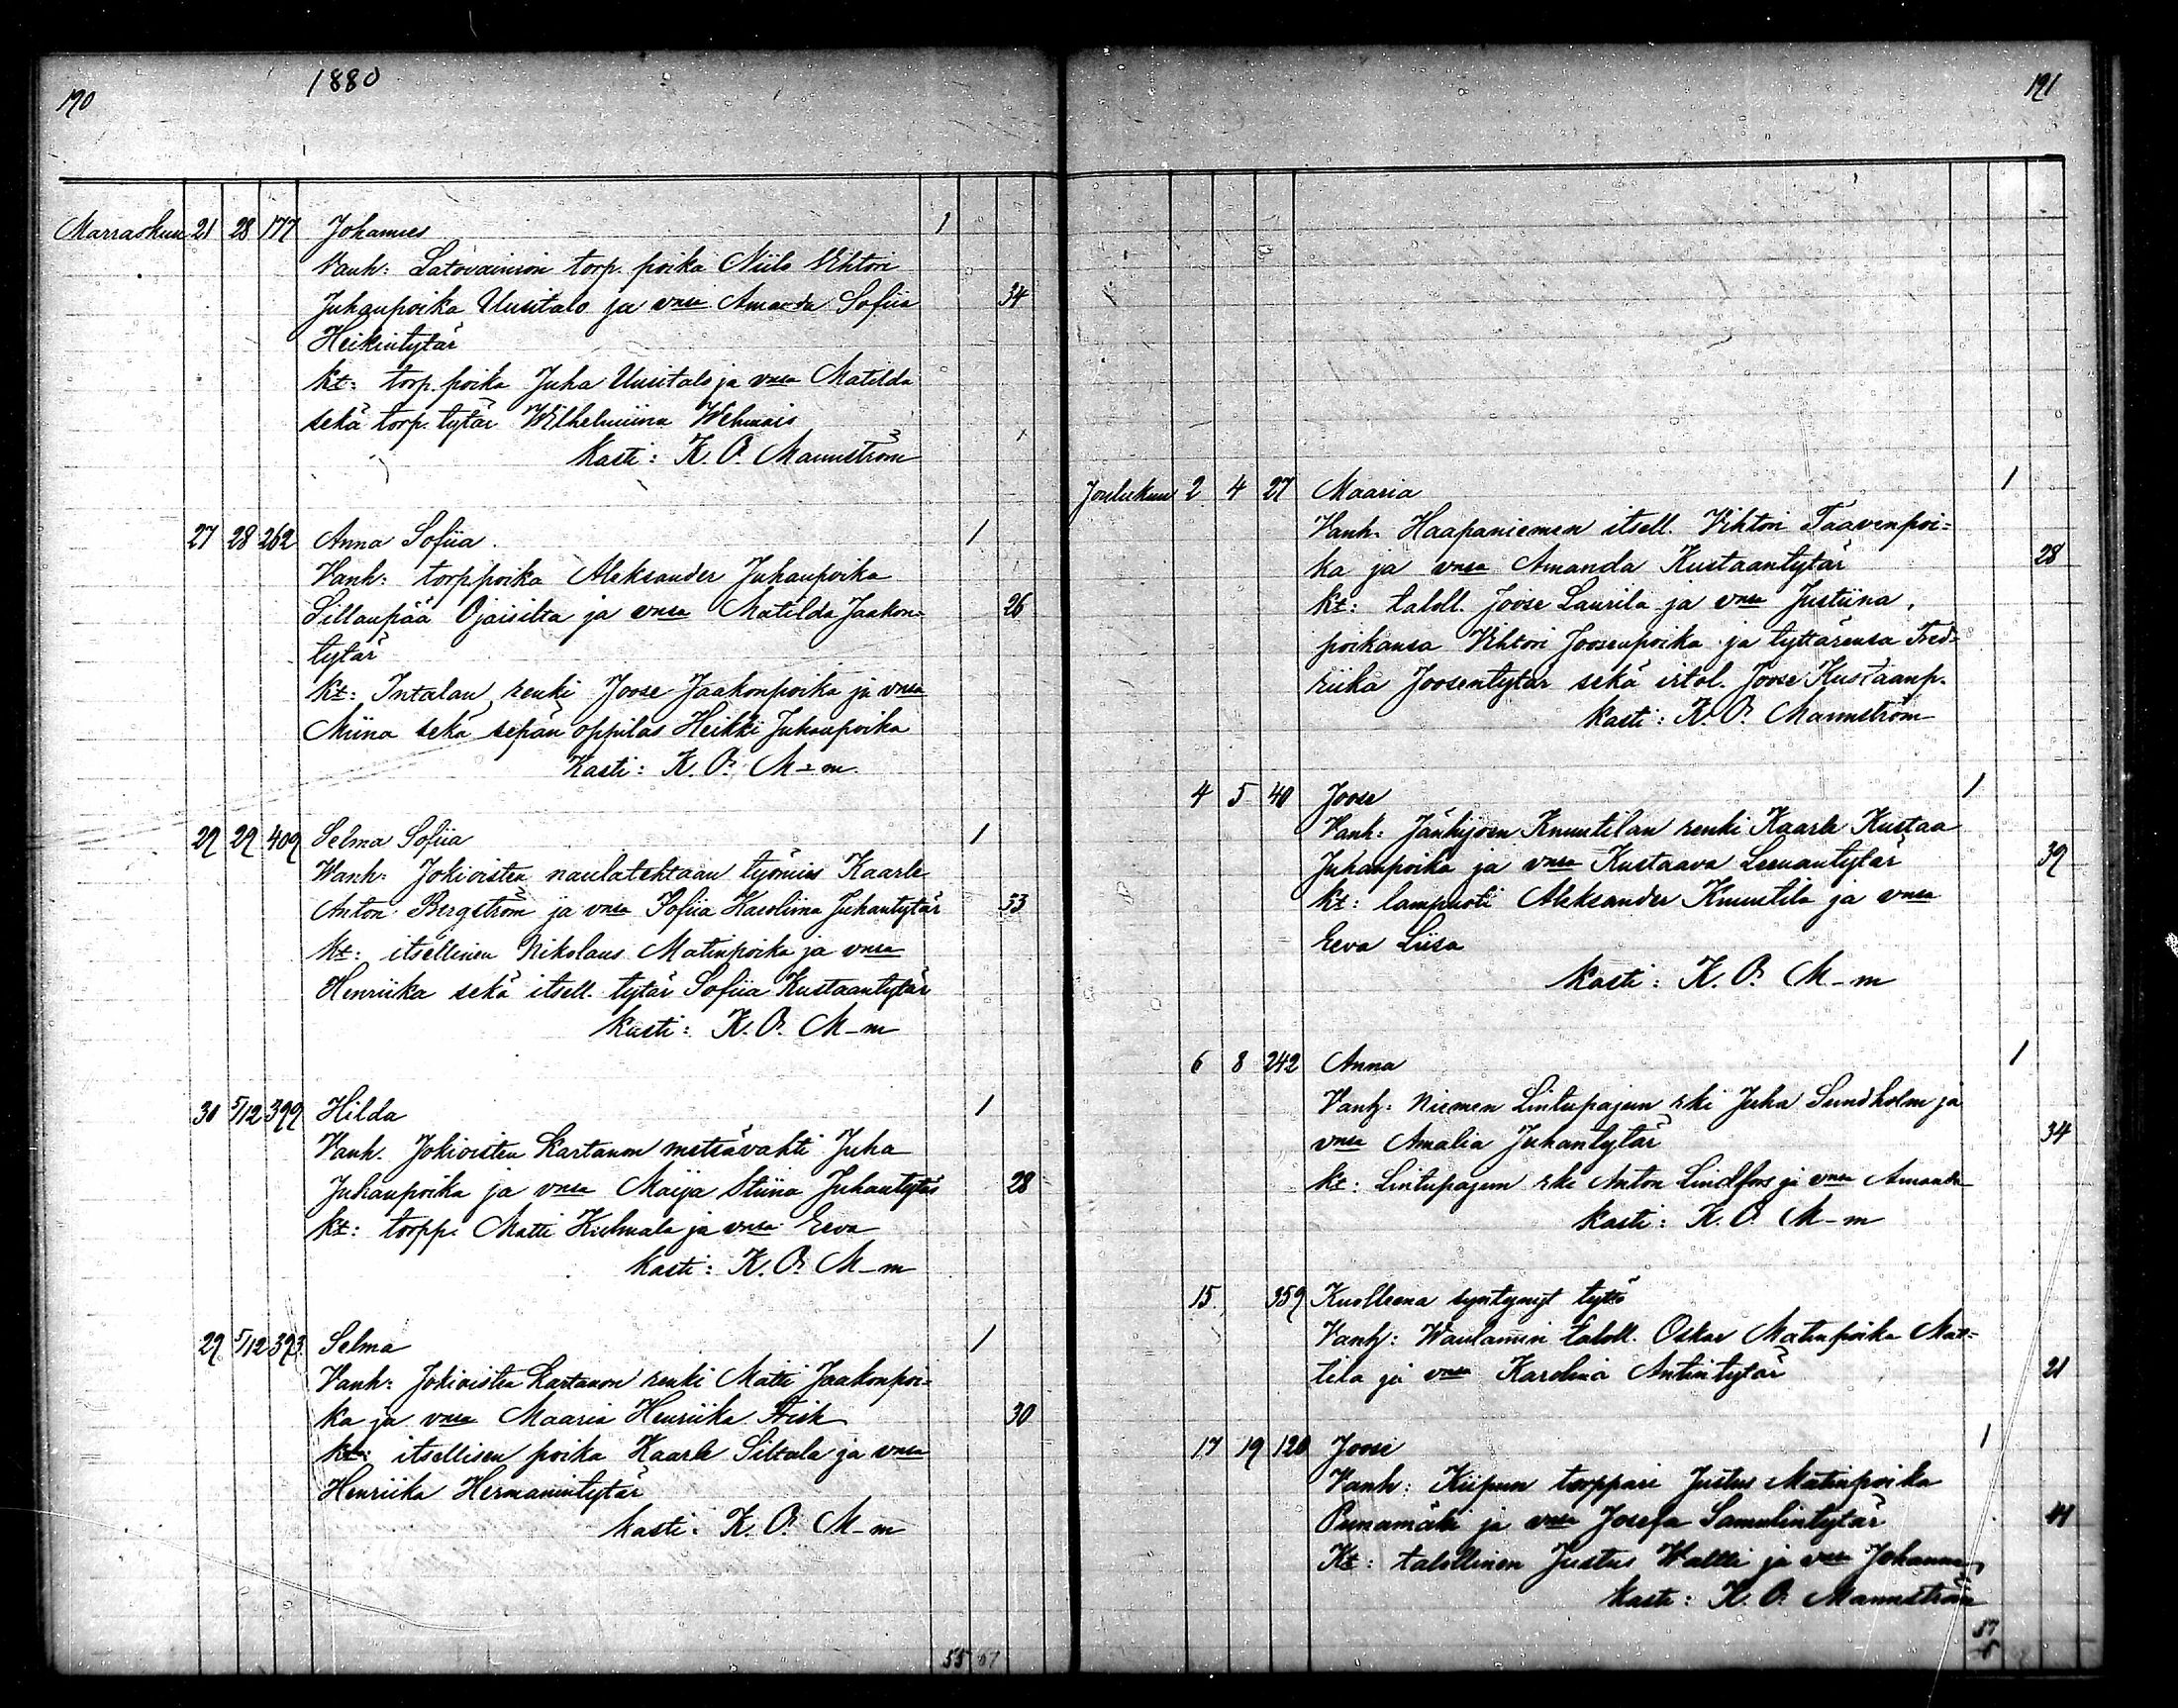 190
1880
Marraskuu 21 28 177 Johannes 1
Vanh: Latovainion torp. poika Niilo Vihtori
Juhanpoika Uusitalo ja vmsa Amanda Sofiia 34
Heikintytär
kt: torp. poika Juha Uusitalo ja vmsa Matilda
sekä torp. tytär Wilhelmiina
Kasti: K. O. Mannström
27 28 262 Anna Sofiia 1
Vanh: torp poika Aleksander Juhanpoika
Sillanpää Ojaisilta ja vmsa Matilda Jaakon= 26
tytär
kt: Intalan renki Joose Jaakonpoika ja vmsa
Miina sekä sepän oppilas Heikki Juhanpoika
Kasti: K. O. M=m.
29 29 409 Selma Sofiia 1
Wanh: Jokioisten naulatehtaan työmies Kaarle
Anton Bergström ja vmsa Sofiia Karoliina Juhantytär 33
kt: itsellinen Nikolaus Matinpoika ja vmsa
Henriika sekä itsell. tytär Sofiia Kustaantytär
kasti: K. O. M-m
30 5/12 399 Hilda 1
Vanh. Jokioisten Kartanon metsävahti Juha
Juhanpoika ja vmsa Maija Stiina Juhantytär 28
kt: torpp. Matti Kiehmala ja vmsa Eeva
kasti: K. O. M-m
29 5/12 393 Selma 1
Vanh: Jokioisten Kartanon renki Matti Jaakonpoi=
ka ja vmsa Maaria Henriika 30
kt: itsellisen poika Kaarle Siltala ja vmsa
Henriika Hermanintytär
kasti: K. O. M-m
55
191
Joulukuu 2 4 27 Maaria 1
Vanh. Haapaniemen itsell. Vihtori Taavenpoi=
ka ja vmsa Amanda Kustaantytär 28
kt: taloll. Joose Laurila ja vmsa Justiina,
poikansa Vihtori Joosenpoika ja tyttärensa Fred=
riika Joosentytär sekä irtol. Joose Kustaanp.
kasti: K. O. Mannström
4 5 40 Joose 1
Vanh: Jänhijoen Knuutilan renki Kaarle Kustaa
Juhanpoika ja vmsa Kustaava Leenantytär 39
kt: lampuoti Aleksander Knuutila ja vmsa
Eeva Liisa
kasti: K. O. M-m
6 8 242 Anna 1
Vanh: Niemen Lintupajun rki Juha Sundholm ja
vmsa Amalia Juhantytär 34
kt: Lintupajun rki Anton Lindfors ja vmsa Amanda
kasti: K. O. M-m
15 359 Kuolleena syntynyt tyttö
Vanh: Waulamin taloll. Oskar Matinpoika Mat=
tila ja vmsa Karolina Antintytär 21
17 19 120 Joosi 1
Vanh: Kiipun torppari Justus Matinpoika
Punamäki ja vmsa Josefa Samulintytär 41
Kt: talollinen Justus Waltti ja vmsa Johanna
kasti: K. O. Mannström
57